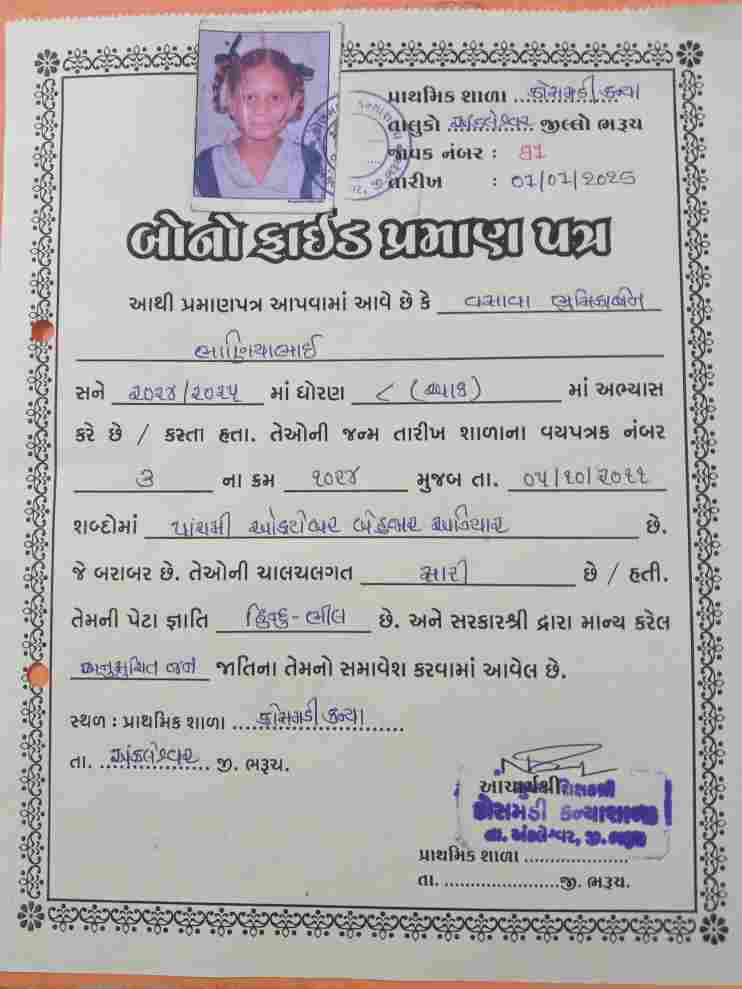 પ્રાથમિક શાળા ..કોસમડી કન્યા
તાલુકો ..અંકલેશ્વર.. જીલ્લો ભરૂચ
જાવક નંબર : 81
તારીખ : 01/01/2025
બોનોફાઈડ પ્રમાણ પત્ર
આથી પ્રમાણપત્ર આપવામાં આવે છે કે વસાવા ભુમિકાબેન
ભાણિયાભાઈ
સને ૨૦૨૪/૨૦૨૫ માં ધોરણ ૮ (આઠ) માં અભ્યાસ
કરે છે / કરતા હતા. તેઓની જન્મ તારીખ શાળાના વયપત્રક નંબર
૩ ના ક્રમ ૧૦૨૪ મુજબ તા. ૦૫/૧૦/૨૦૧૧
શબ્દોમાં પાંચમી ઓકટોબર બેહજાર અગિયાર છે.
જે બરાબર છે. તેઓની ચાલચલગત સારી છે / હતી.
તેમની પેટા જ્ઞાતિ હિન્દુ-ભીલ છે. અને સરકારશ્રી દ્રારા માન્ય કરેલ
અનુસુચિત જન જાતિના તેમનો સમાવેશ કરવામાં આવેલ છે.
સ્થળ : પ્રાથમિક શાળા ..કોસમડી કન્યા..
તા. ..અંકલેશ્વર.. જી. ભરૂચ.
કોસમડી કન્યાશાળા
તા. અંકલેશ્વર, જી. ભરૂચ
પ્રાથમિક શાળા ....................
તા. ......................જી. ભરૂચ.